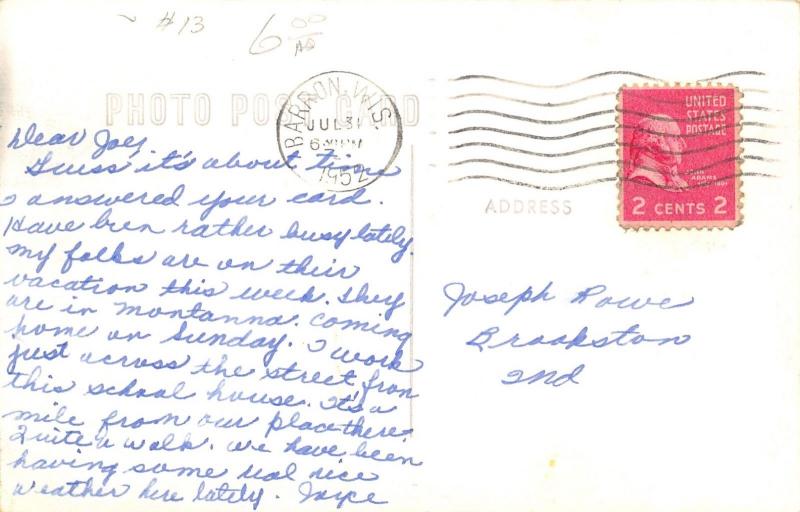 #13
6 00
PHOTO POST CARD
BARRON, WIS.
JUL 31
1952
UNITED
STATES
POSTAGE
JOHN
ADAMS
2 CENTS 2
ADDRESS
Dear Joe,
Guess it's about time
I answered your card.
Have been rather busy lately.
My folks are on their
vacation this week. They
are in Montanna. Coming
home on Sunday. I work
just across the street from
this school house. It's a
mile from our place there.
Quite a walk. We have been
having some real nice
weather here lately. Joyce
Joseph Rowe
Brookston
Ind